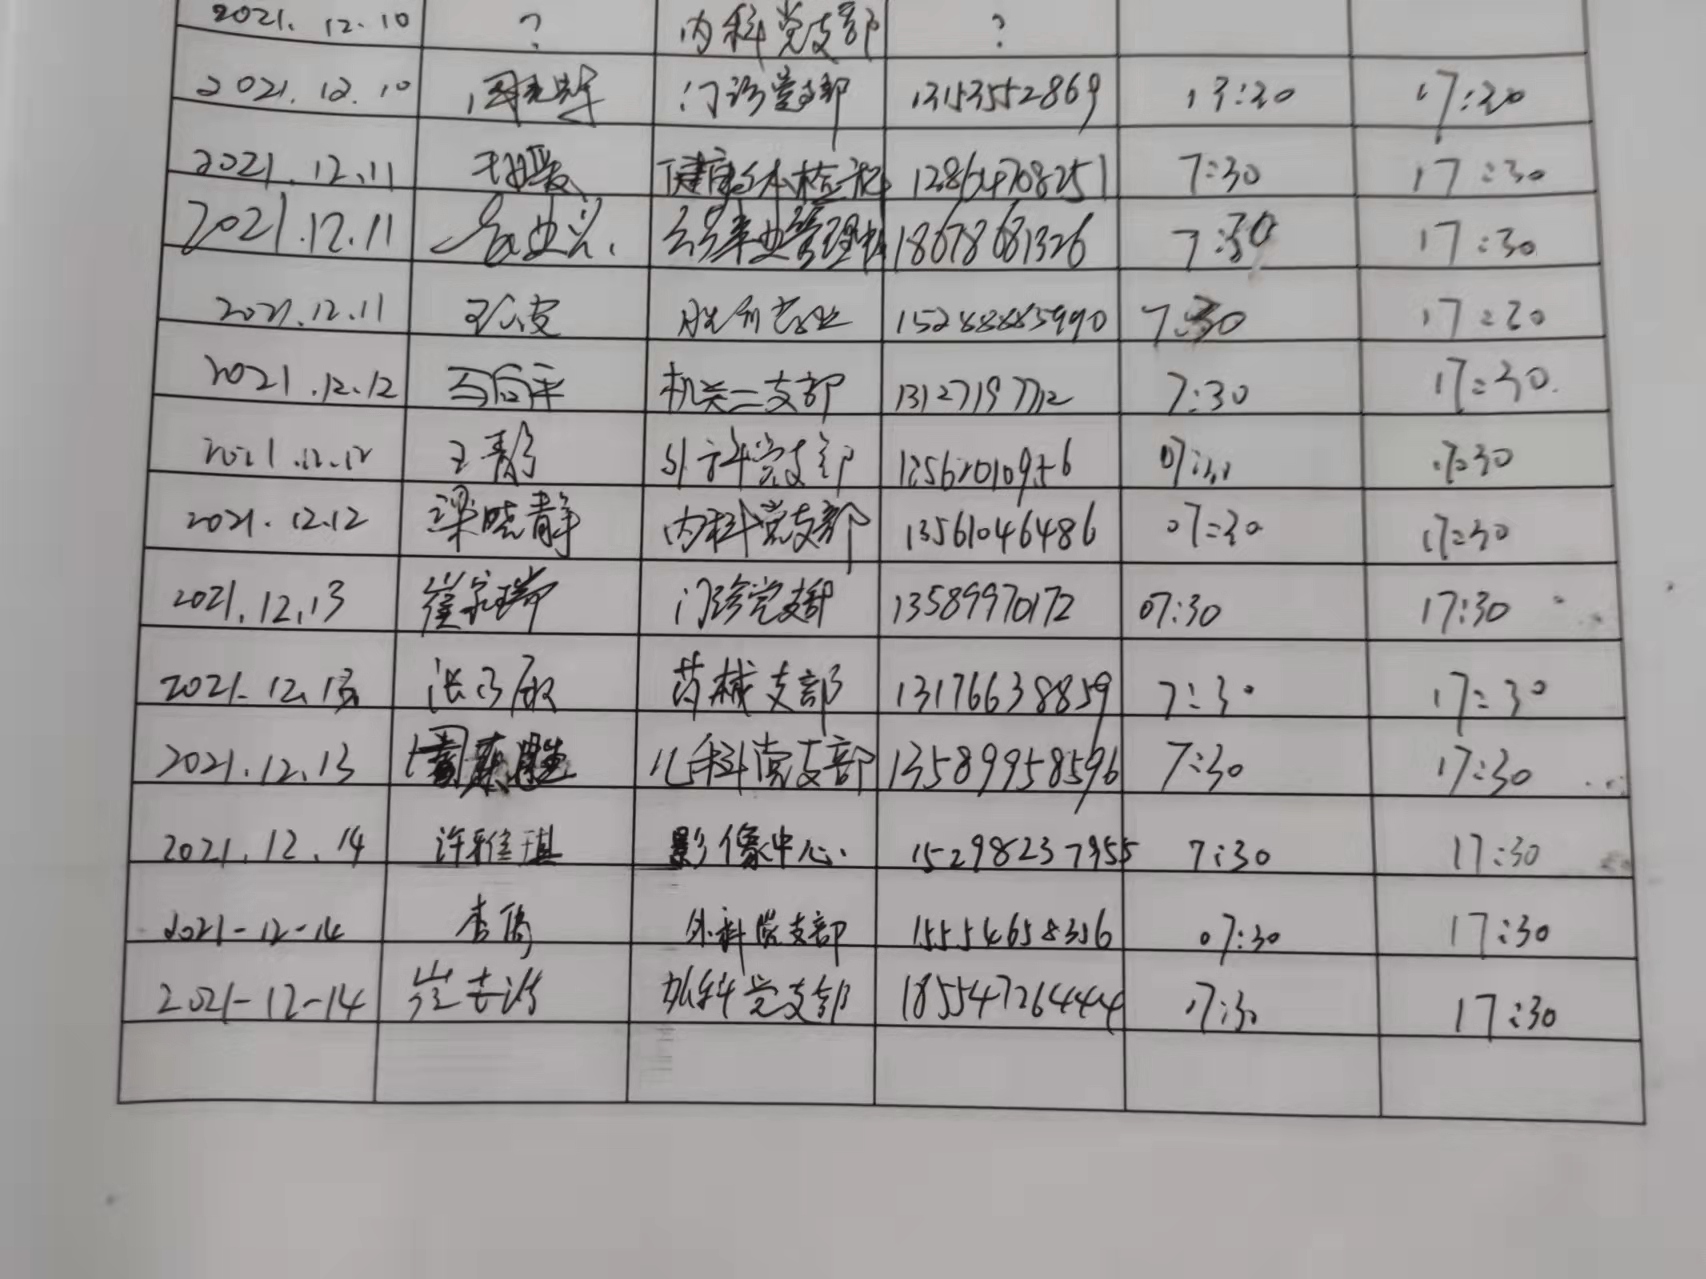 2021.12.10 ? 内科党支部 ?
2021.12.10 门诊党支部 13153552869 17:30
2021.12.11 健康体检科 12864708251 7:30 17:30
2021.12.11 18678681326 7:30 17:30
2021.12.11 15288885990 7:30 17:30
2021.12.12 机关二支部 13127197712 7:30 17:30.
2021.12.12 王静 外科党支部 17:30
2021.12.12 梁晓静 内科党支部 13561046486 07:30 17:30
2021.12.13 崔家瑞 门诊党支部 13589970172 07:30 17:30
2021.12.13 药械支部 13176638859 7:30 17:30
2021.12.13 儿科党支部 13589958596 7:30 17:30
2021.12.14 许雅琪 影像中心. 15298237955 7:30 17:30
2021-12-14 李倩 外科党支部 15554658356 07:30 17:30
2021-12-14 外科党支部 18554726444 07:30 17:30